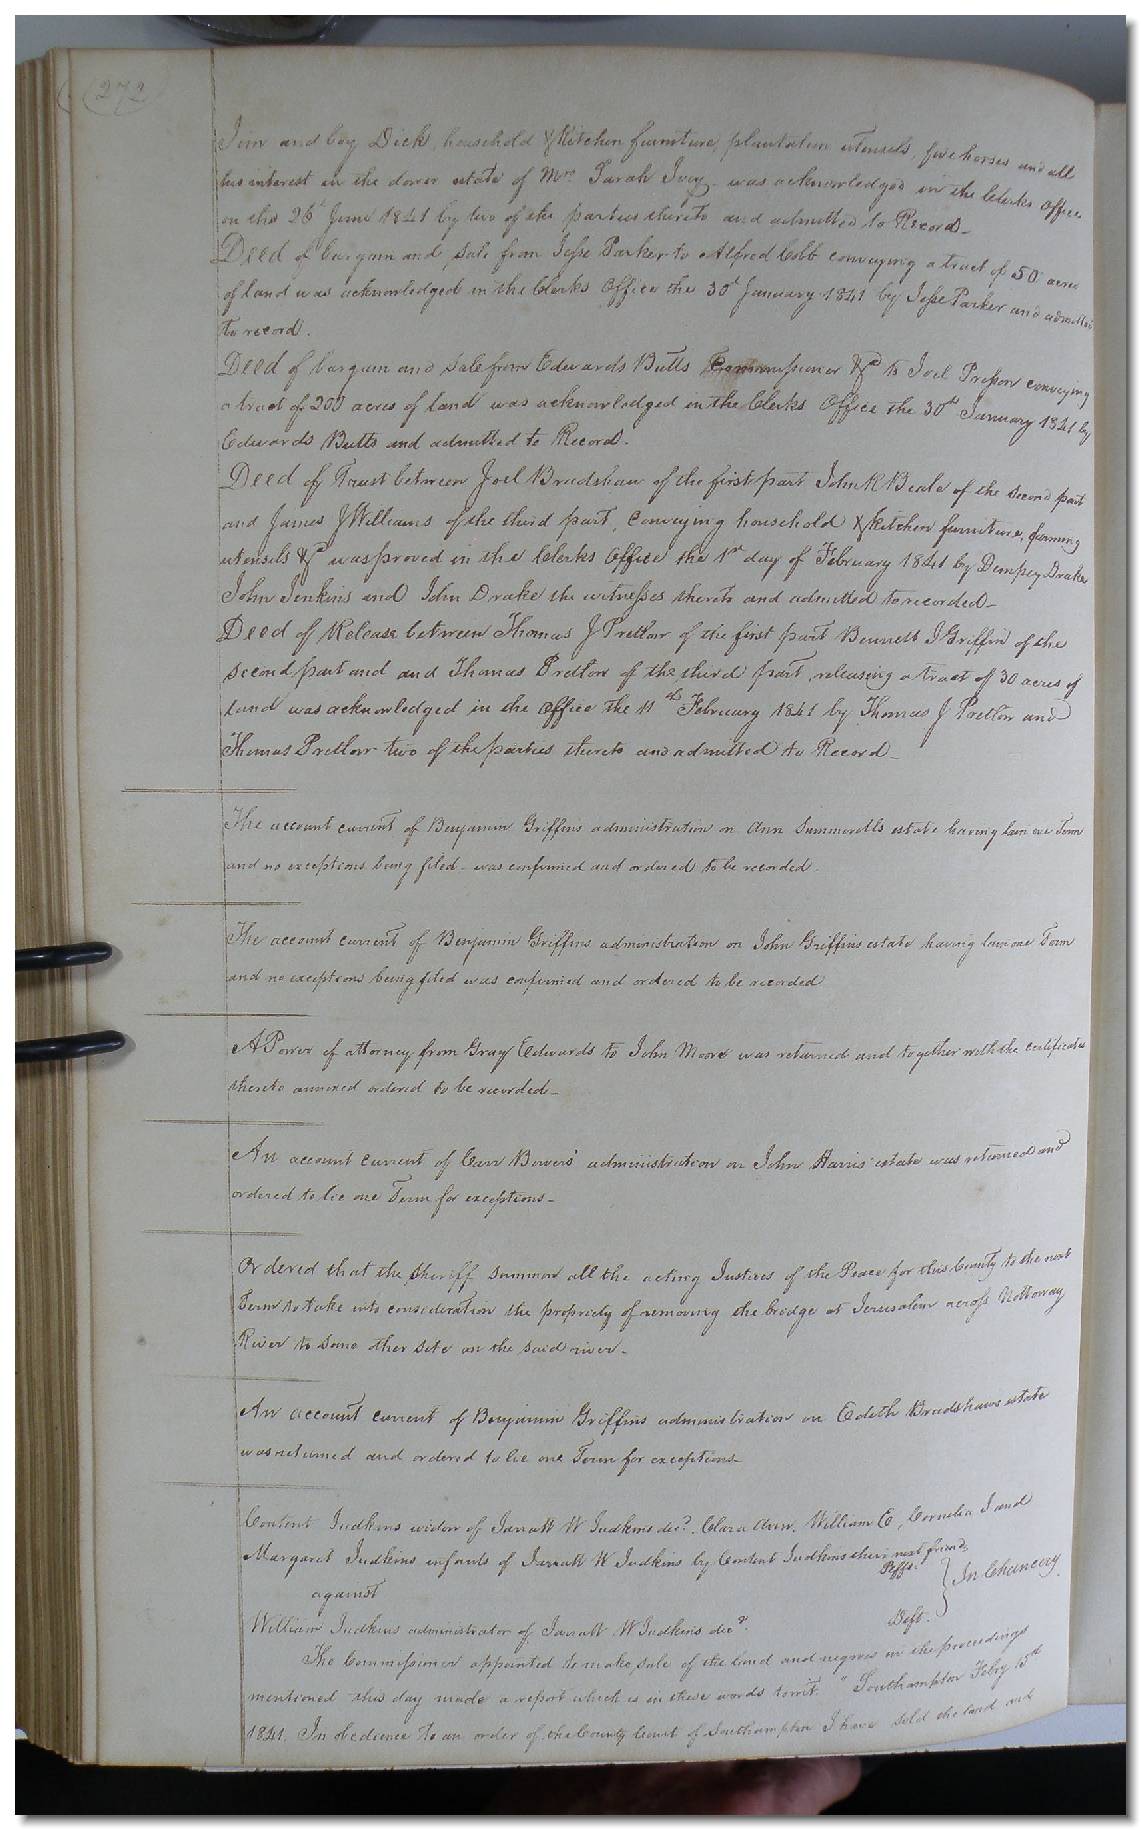 (272)
Jim and boy Dick, household & Kitchen furniture, plantation utensils, five horses and all
his interest in the dower estate of Mrs Sarah Ivey was acknowledged in the Clerks Office
on the 26th June 1841 by two of the parties thereto and admitted to Record_
Deed of bargain and sale from Jesse Parker to Alfred Cobb conveying a tract of 50 acres
of land was acknowledged in the Clerks Office the 30th January 1841 by Jesse Parker and admitted
to record.
Deed of bargain and sale from Edwards Butts Commissioner &c to Joel Presson conveying
a tract of 200 acres of land was acknowledged in the Clerks Office the 30th January 1841 by
Edwards Butts and admitted to Record.
Deed of Trust between Joel Bradshaw of the first part John R Beale of the second part
and James J Williams of the third part, conveying household & kitchen furniture, farming
utensils &c was proved in the Clerks Office the 1st day of February 1841 by Dempsey Drake
John Jenkins and John Drake the witnesses thereto and admitted to recorded_
Deed of Release between Thomas J Pretlow of the first part Bennett J Griffin of the
second part and and Thomas Pretlow of the third part, releasing a tract of 30 acres of
land was acknowledged in the Office the 11th February 1841 by Thomas J Pretlow and
Thomas Pretlow two of the parties thereto and admitted to Record_
The account current of Benjamin Griffins administration on Ann Summerells estate having lain one Term
and no exceptions being filed_ was confirmed and ordered to be recorded.
The account current of Benjamin Griffins administration on John Griffins estate having lain one Term
and no exceptions being filed was confirmed and ordered to be recorded
A Power of attorney from Gray Edwards to John Moore was returned and together with the certificates
thereto annexed ordered to be recorded_
An account current of Carr Bowers' administration on John Harris' estate was returned and
ordered to lie one Term for exceptions_
Ordered that the Sheriff summon all the acting Justices of the Peace for this County to the next
Term to take into consideration the propriety of removing the bridge at Jerusalem across Nottoway
River to some other site on the said river_
An account current of Benjamin Griffins administration on Edith Bradshaws estate
was returned and ordered to lie one Term for exceptions_
Content Judkins widow of Jarratt W Judkins decd. Clara Ann, William E, Cornelia J and
Margaret Judkins infants of Jarratt W Judkins by Content Judkins their next friend
Plffs.
against
In Chancery.
William Judkins administrator of Jarratt W Judkins decd.
Deft.
The Commissioner appointed to make sale of the land and negroes in the proceedings
mentioned this day made a report which is in these words towit: "Southampton Feby 15th
1841. In obedience to an order of the County Court of Southampton I have sold the land and